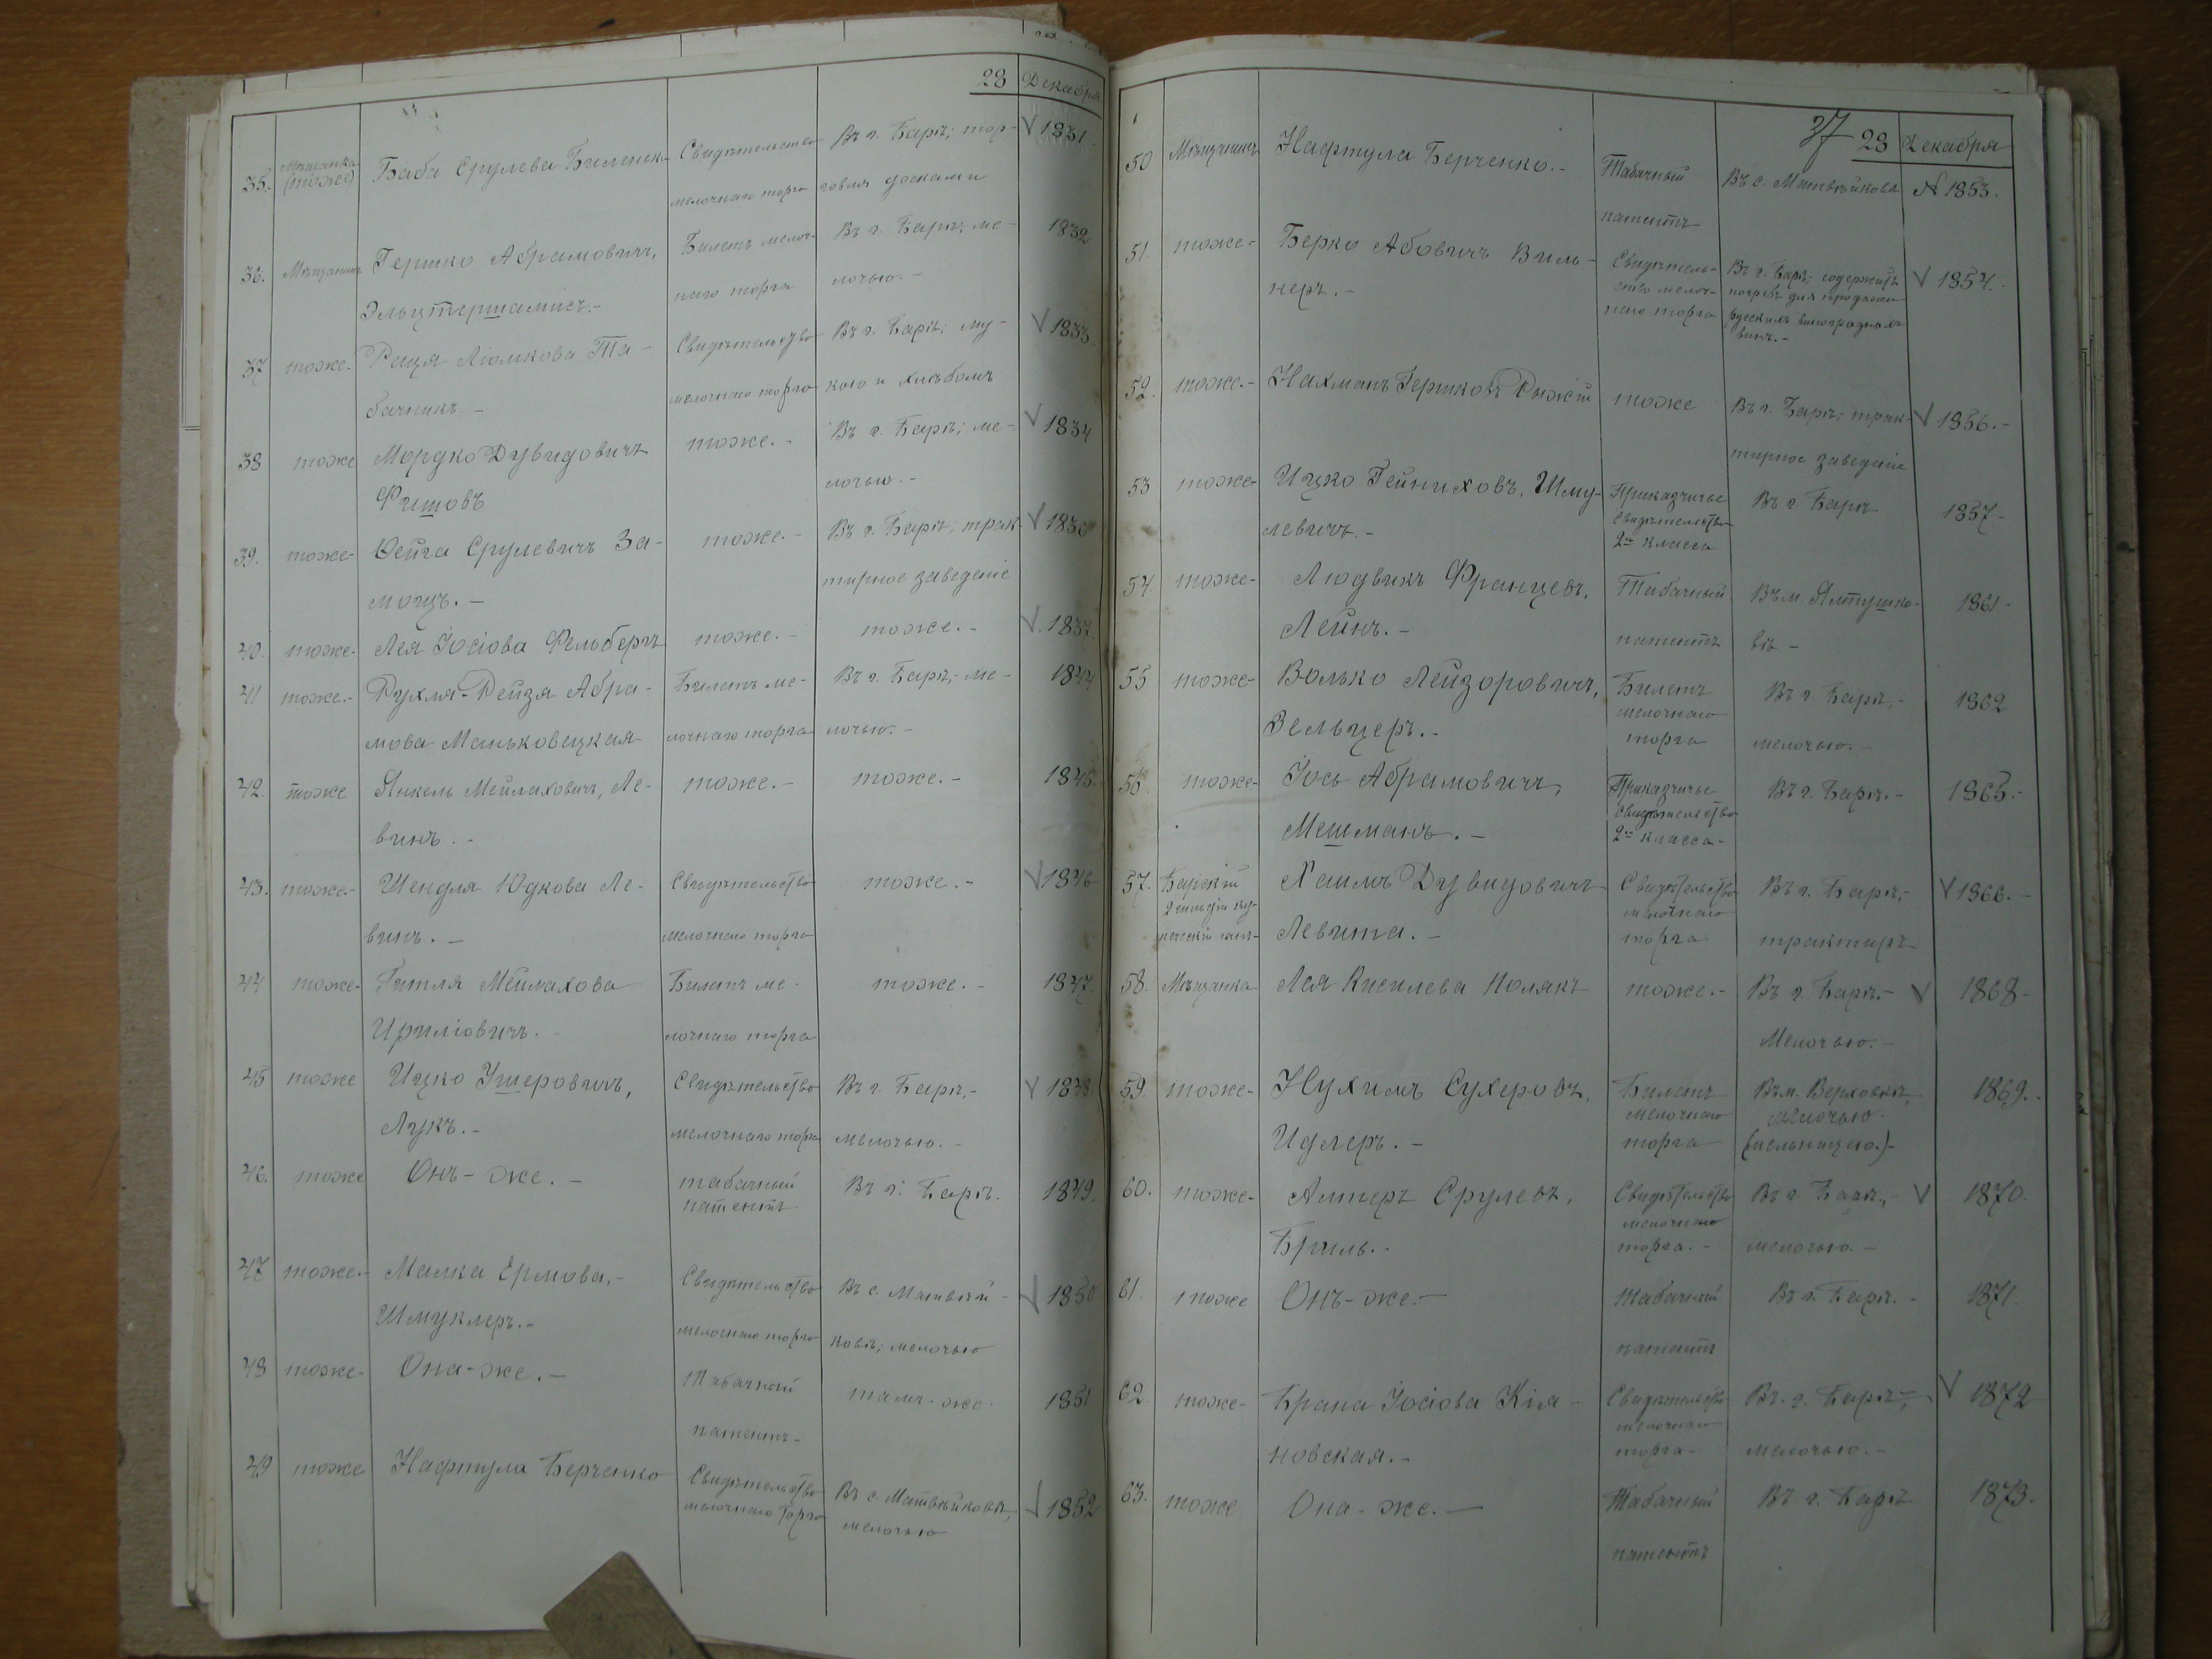 23 Декабря
35. Мѣщанка (тоже) Баба Срулева Биленька Свидѣтельство Въ г. Барѣ; тор- V 1831.
мелочнаго торга говля досками
36. Мѣщанинъ Гершко Абрамовичъ, Билетъ мелоч- Въ г. Барѣ; ме- 1832
Эльцтершамисъ.- наго торга лочью.-
37 тоже.- Реця Ліомкова Та- Свидѣтельство Въ г. Барѣ; му- V 1833.
бачникъ.- мелочнаго торга кою и хлѣбомъ
38 тоже Мордко Дувидовичъ тоже.- Въ г. Барѣ; ме- V 1834
Фишовъ лочью.-
39. тоже- Фейга Срулевичъ За- тоже.- Въ г. Барѣ; трак- V 1836
мощъ.- тирное заведеніе
40. тоже- Лея Іосіова Фельбергъ тоже.- тоже.- V. 1837.
41 тоже.- Рухля-Рейзя Абра- Билетъ ме- Въ г. Барѣ,- ме- 1844
мова Маньковецкая лочнаго торга лочью.-
42. тоже Янкель Мейлаховичъ, Ле- тоже.- тоже.- 1845.
винъ.-
43. тоже.- Шендля Юдкова Ле- Свидѣтельство тоже.- V 1846
винъ.- мелочнаго торга
44 тоже- Гитля Мейлахова Билетъ ме- тоже.- 1847.
Ирилiовичъ. лочнаго торга
45 тоже Ицко Ушеровичъ, Свидѣтельство Въ г. Барѣ,- V 1848.
Лукъ.- мелочнаго торга мелочью.-
46. тоже Онъ-же.- табачный Въ г. Барѣ. 1849.
патентъ
47 тоже.- Малка Ермова,- Свидѣтельство Въ с. Матвѣй- V 1850
Шмуклеръ.- мелочнаго торга ковѣ; мелочью
48 тоже- Она-же.- Табачный тамъ-же. 1851.
патентъ-
49 тоже Нафтула Берченко Свидѣтельство Въ с. Матвѣйковѣ, V 1852
мелочнаго торга мелочью
37 23 Декабря
50 Мѣщанинъ Нафтула Берченко.- Табачный Въ с. Матвѣйкова № 1853.
патентъ
51. тоже- Берко Абовичъ Виль- Свидѣтель- Въ г. Барѣ; содержитъ V 1854.-
неръ.- ство мелоч- погребъ для продажи
наго торга русскихъ виноградныхъ
винъ.-
52. тоже.- Нахманъ Гершковъ Рыжій тоже Въ г. Барѣ; трак- V 1856.-
тирное заведеніе
53 тоже- Ицко Гейниховъ, Шму- Приказчичье Въ г. Барѣ 1857-
левичъ.- свидѣтельство
2го класса
54. тоже- Людвикъ Францевъ, Табачный Въ м. Ялтушко- 1861-
Лейнъ.- патентъ вѣ-
55 тоже- Волько Лейзоровичъ, Билетъ Въ г. Барѣ,- 1862
Вельцеръ.- мелочнаго
торга мелочью.-
56 тоже- Іось Абрамовичъ, Приказчичье Въ г. Барѣ.- 1865.-
Мешманъ.- свидѣтельство
2го класса-
57. Барскій Хаимъ Дувидовичъ Свидѣтельство Въ г. Барѣ,- V 1866.-
2 гильдіи ку- мелочнаго
печескій сынъ- Левита.- торга трактиръ
58. Мѣщанка Лея Кисилева Полякъ тоже.- Въ г. Барѣ.- V 1868-
Мелочью.-
59. тоже- Нухимъ Сухеровъ, Билетъ Въ м. Верховкѣ, 1869.-
мелочнаго мелочью.
Идлеръ.- торга (мельницею.)-
60. тоже- Алтеръ Срулевъ, Свидѣтельство Въ г. Барѣ,- V 1870.
мелочнаго
Бриль.- торга.- мелочью.-
61. тоже Онъ-же.- Табачный Въ г. Барѣ.- 1871.
патентъ
62 тоже- Брана Іосіова Кія- Свидѣтельство Въ. г. Барѣ,- V 1872
мелочнаго
новская.- торга- мелочью.-
63. тоже Она-же.- Табачный Въ г. Барѣ 1873.
патентъ